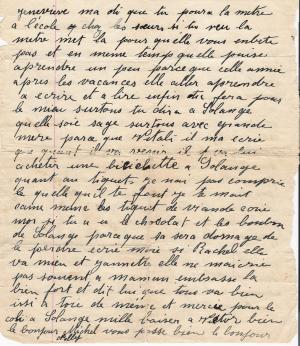 genevieve ma di que tu poura la metre
a l'école chez les sœurs si tu veu la
metre met la pour quelle vous embete
pas et en meme temp quelle puise
aprendre un peu parce que cette année
apres les vacances elle aller aprendre
a ecrire et a lire enfin tu fera pour
le mieu surtous tu dira a Solange
quelle soie sage surtous avec grande
mere parce que il ma ecrie
que quand il
acheter une biciclette a Solange
quant au tiquet je nait pas comprie
la quelle qu'il te faut je te mait
caine meme les tiquet de viande ecrie
moi si tu a u le chocolat et les bonbon
de Solange parceque sa sera domage de
la perdre ecrie moi si Rachel elle
va mieu et yannette elle ne mai crie
pas souvent a maman embrasse la
bien fort et dit lui que tous va bien
issi a toie de meme et mercie pour le
coli a Solange mille baiser a bien
le bonjour Michel vous passe bien le bonjour